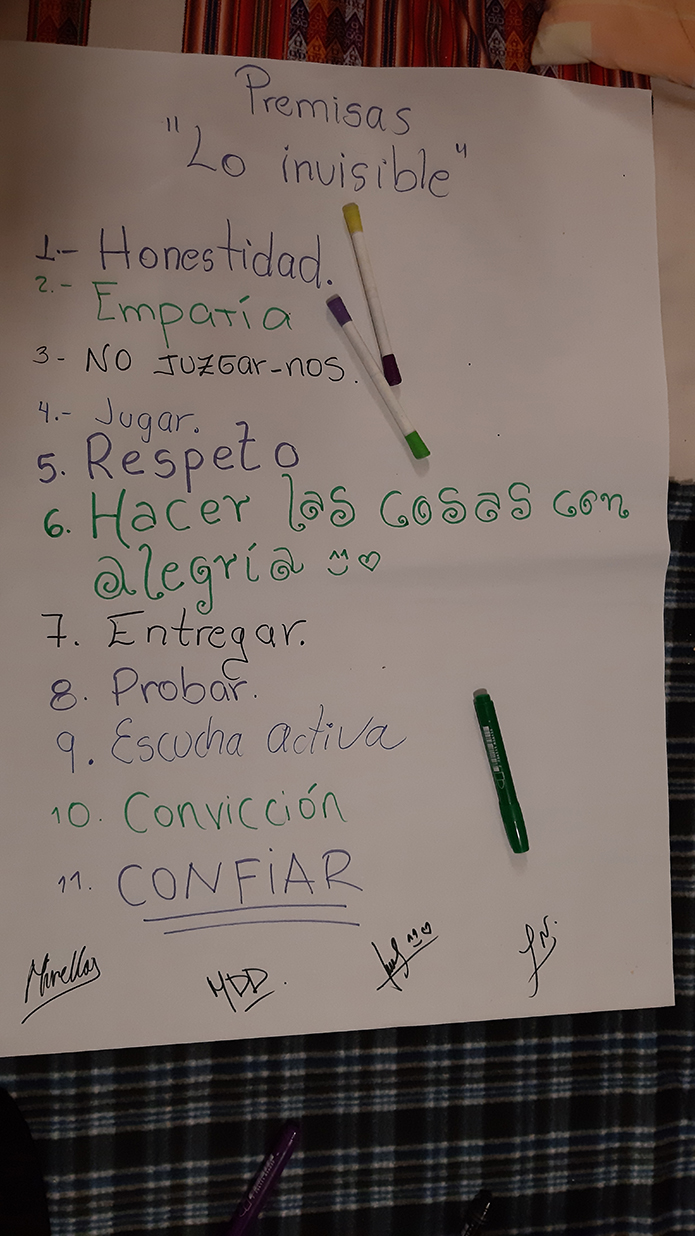 Premisas
"Lo invisible"
1.- Honestidad.
2.- Emparía
3- NO JUZGar-nos.
4.- Jugar.
5. Respeto
6. Hacer las cosas con
alegría
7. Entregar.
8. Probar.
9. Escucha activa
10. Convicción
11. CONFiAR
MDD.